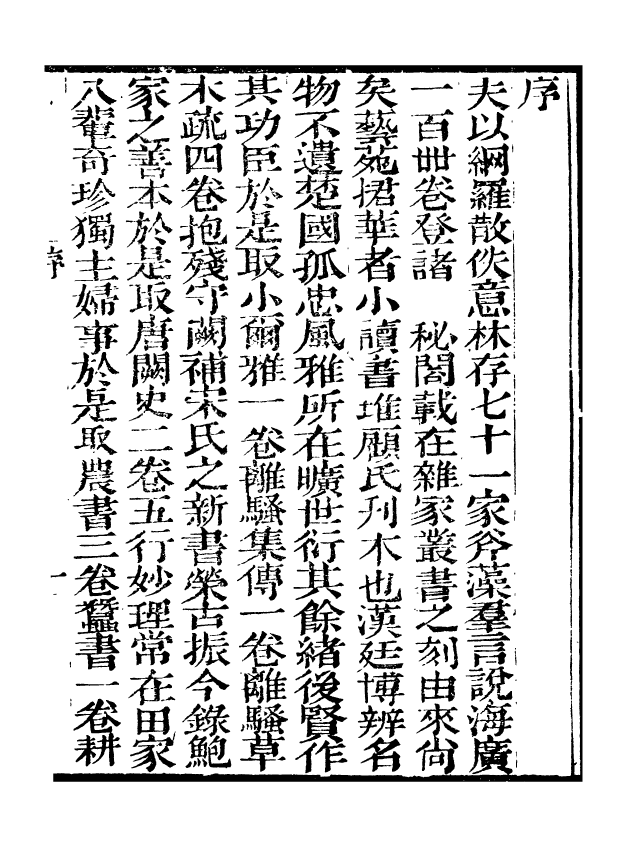 序
夫以網羅散佚意林存七十一家斧藻羣言說海廣
一百卌卷登諸　祕閣載在雜家叢書之刻由來尙
矣藝苑捃華者小讀書堆顧氏刋木也漢廷博辨名
物不遺楚國孤忠風雅所在曠世衍其餘緖後賢作
其功臣於是取小爾雅一卷離騷集傳一卷離騷草
木疏四卷抱殘守闕補宋氏之新書榮古振今錄鮑
家之善本於是取唐闕史二卷五行妙理常在田家
八輩奇珍獨主婦事於是取農書三卷蠶書一卷耕
序
一